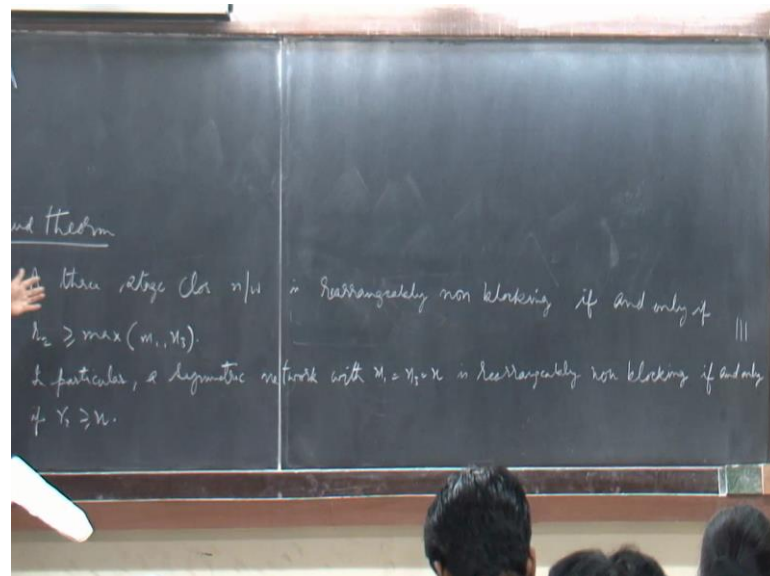 theorm
A three stage Clos n/w is rearrangeably non blocking if and only if
r₂ ≥ max(n₁, n₃).
In particular, a symmetric network with n₁ = n₃ = n is rearrangeably non blocking if and only
if r₂ ≥ n.